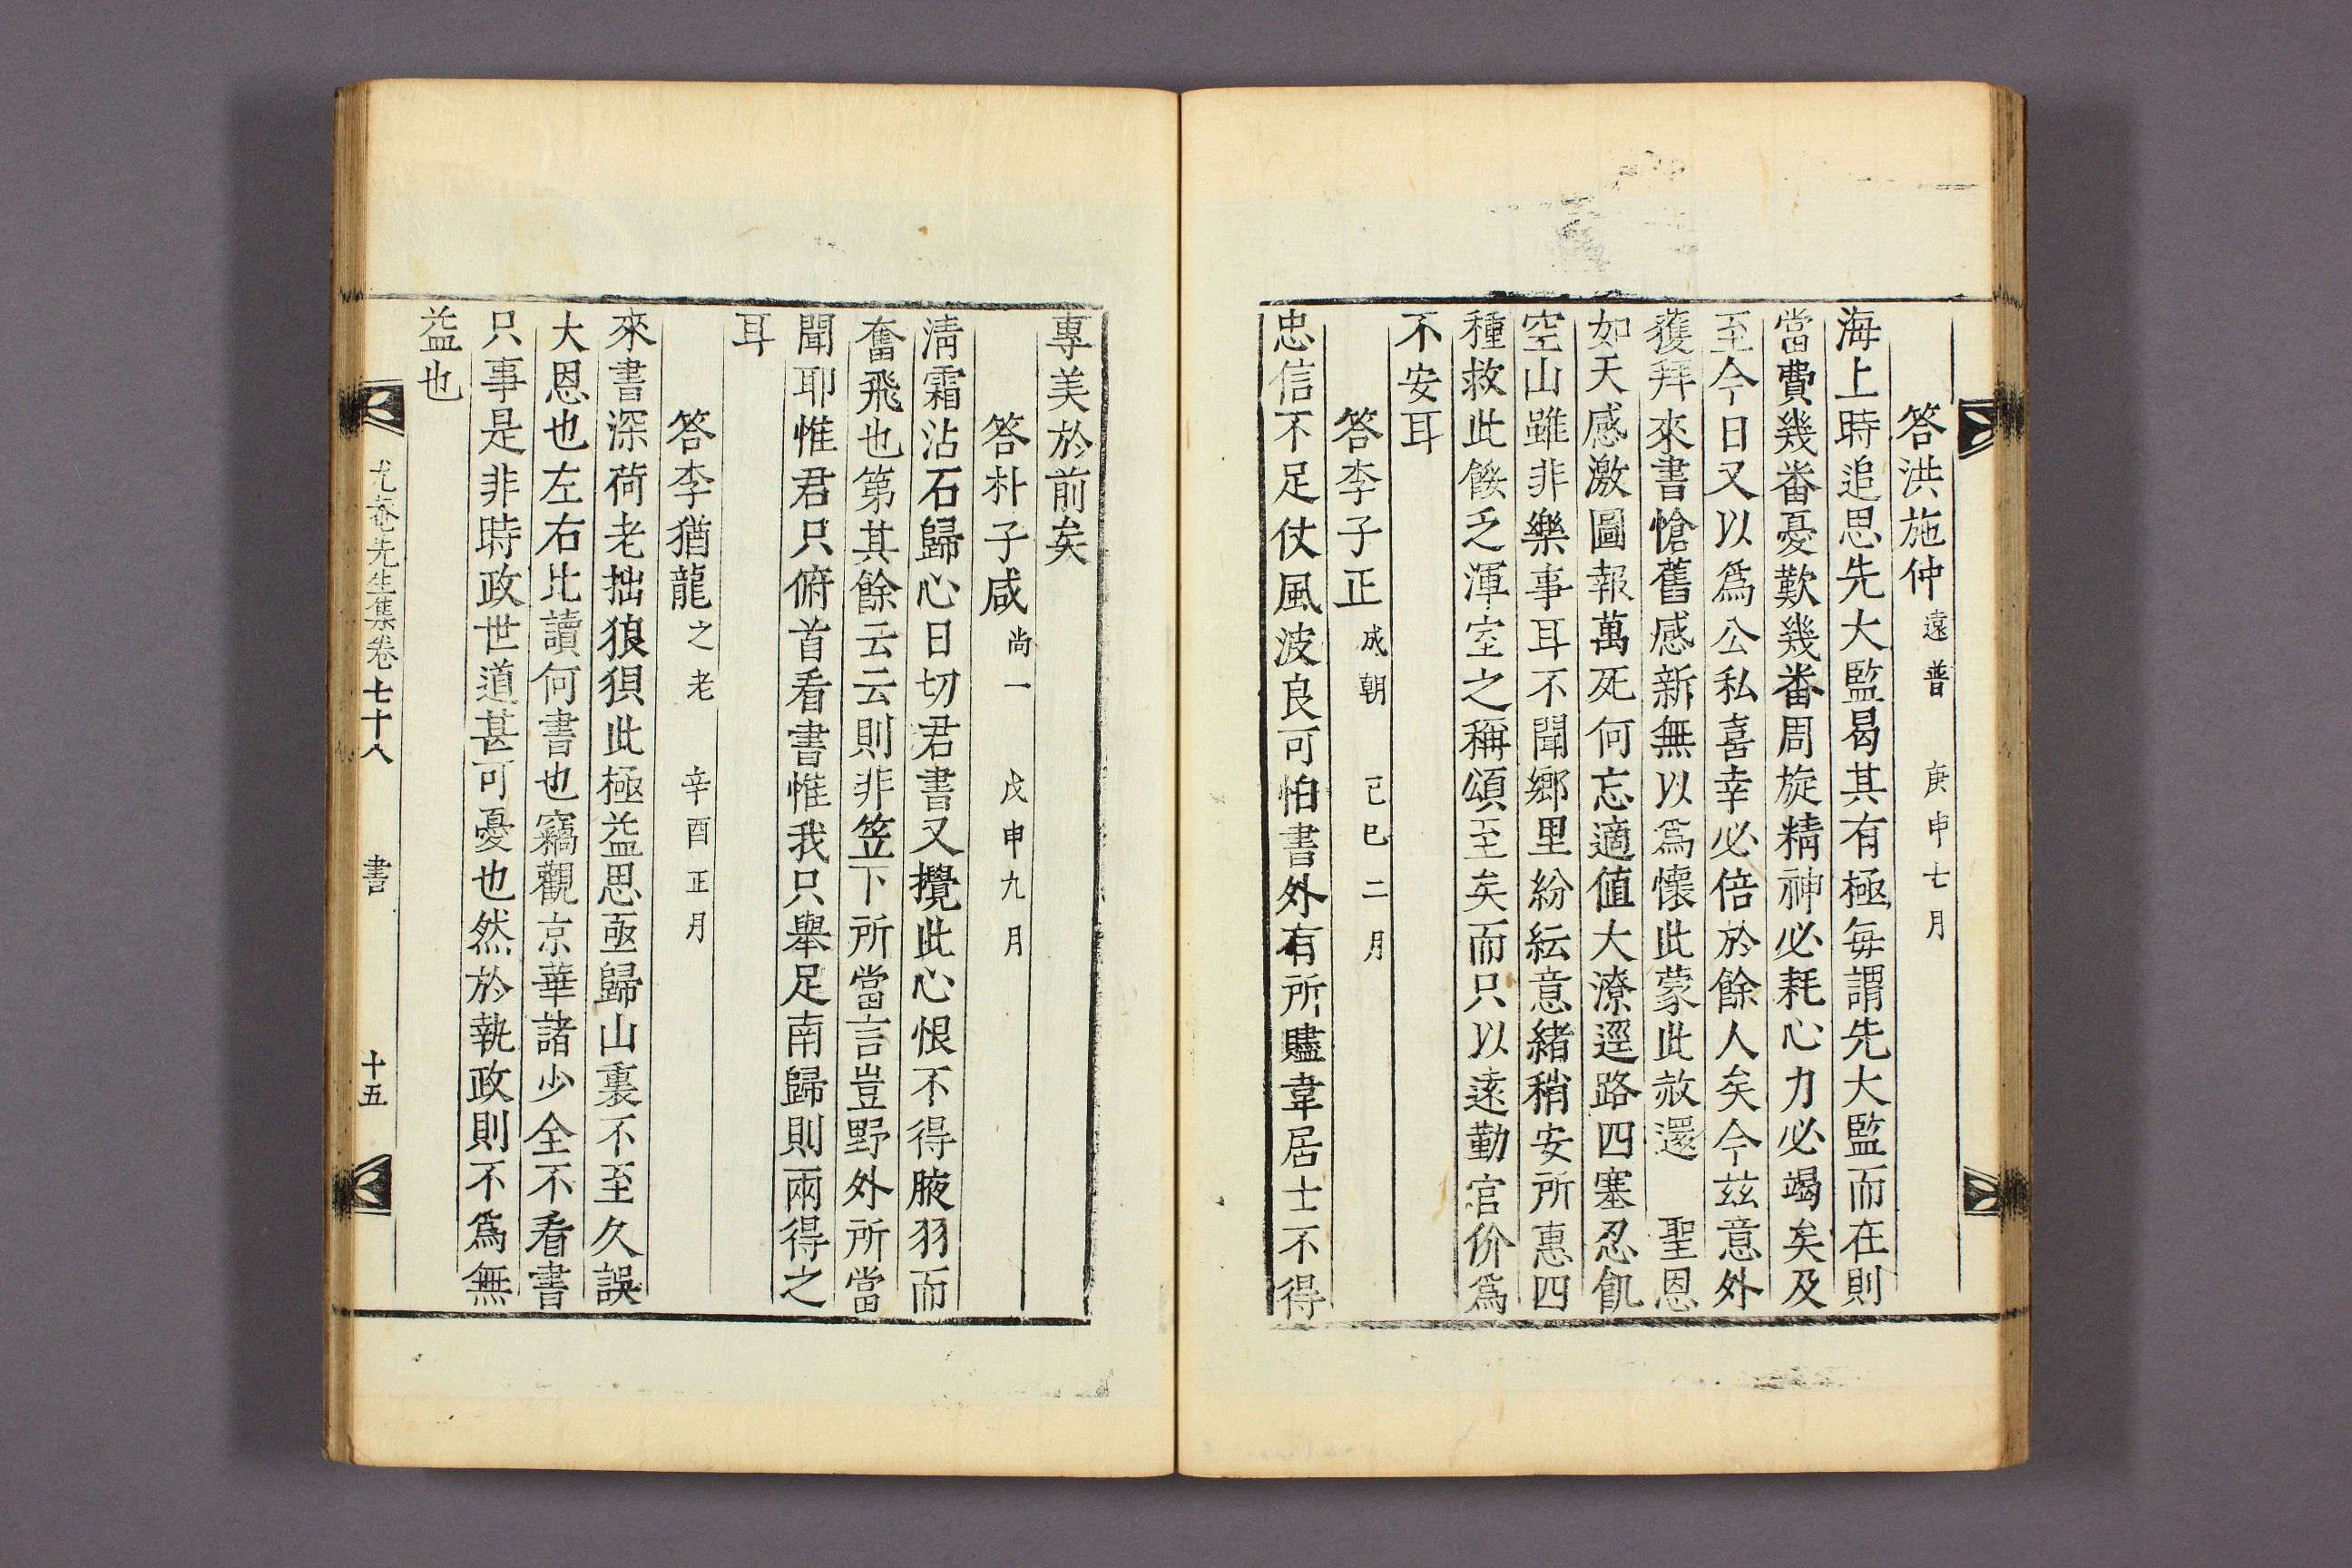 答洪施仲遠普 庚申七月
海上時追思先大監曷其有極每謂先大監而在則
當費幾番憂歎幾番周旋精神必耗心力必竭矣及
至今日又以爲公私喜幸必倍於餘人矣今玆意外
獲拜來書愴舊感新無以爲懷此蒙此赦還 聖恩
如天感激圖報萬死何忘適値大潦逕路四塞忍飢
空山雖非樂事耳不聞鄕里紛紜意緖稍安所惠四
種救此餒乏渾室之稱頌至矣而只以遠勤官价爲
不安耳
答李子正成朝 己巳二月
忠信不足仗風波良可怕書外有所贐韋居士不得
專美於前矣
答朴子咸尙一 戊申九月
淸霜沾石歸心日切君書又攪此心恨不得腋羽而
奮飛也第其餘云云則非笠下所當言豈野外所當
聞耶惟君只俯首看書惟我只擧足南歸則兩得之
耳
答李猶龍之老 辛酉正月
來書深荷老拙狼狽此極益思亟歸山裏不至久誤
大恩也左右比讀何書也竊觀京華諸少全不看書
只事是非時政世道甚可憂也然於執政則不爲無
益也
尤菴先生集卷七十八 書 十五